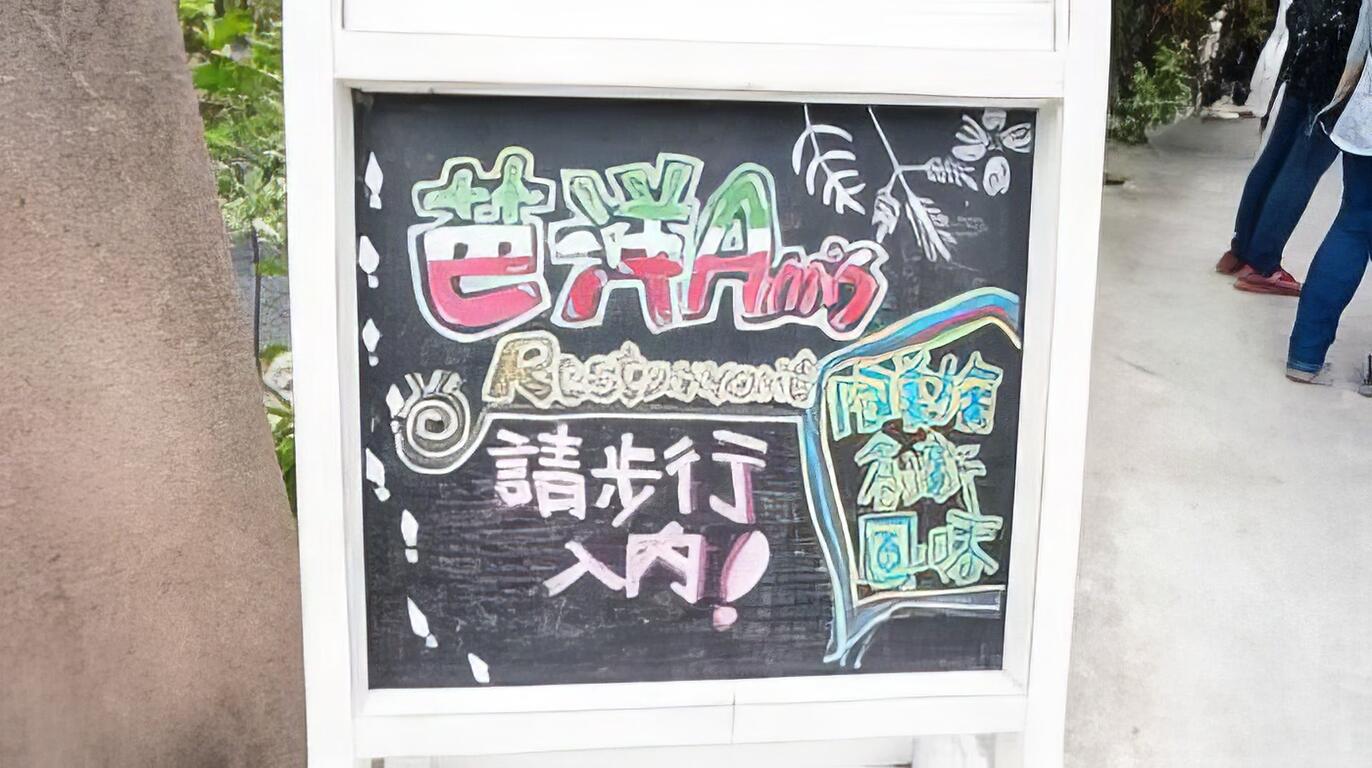 芭洋Ami
Restaurant
請步行
入內!
創新
回味